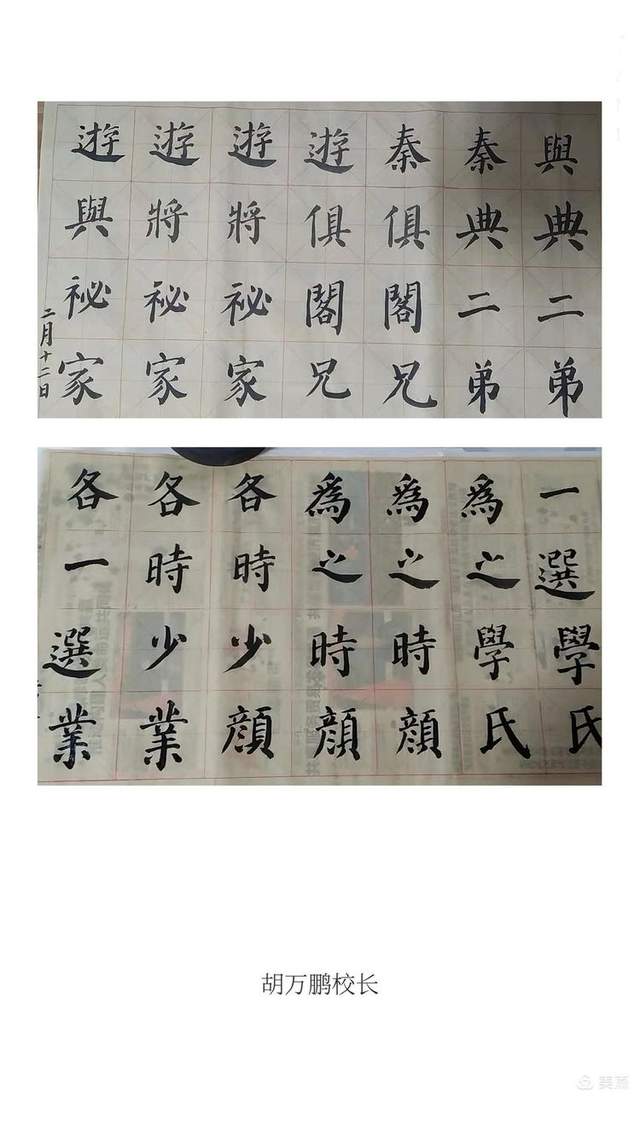 與典二弟
秦典二弟
秦俱閣兄
遊俱閣兄
遊將祕家
遊將祕家
遊與祕家
二月十二日
一選學氏
爲之學氏
爲之時顔
爲之時顔
各時少顔
各時少業
各一選業
胡万鹏校长
美篇